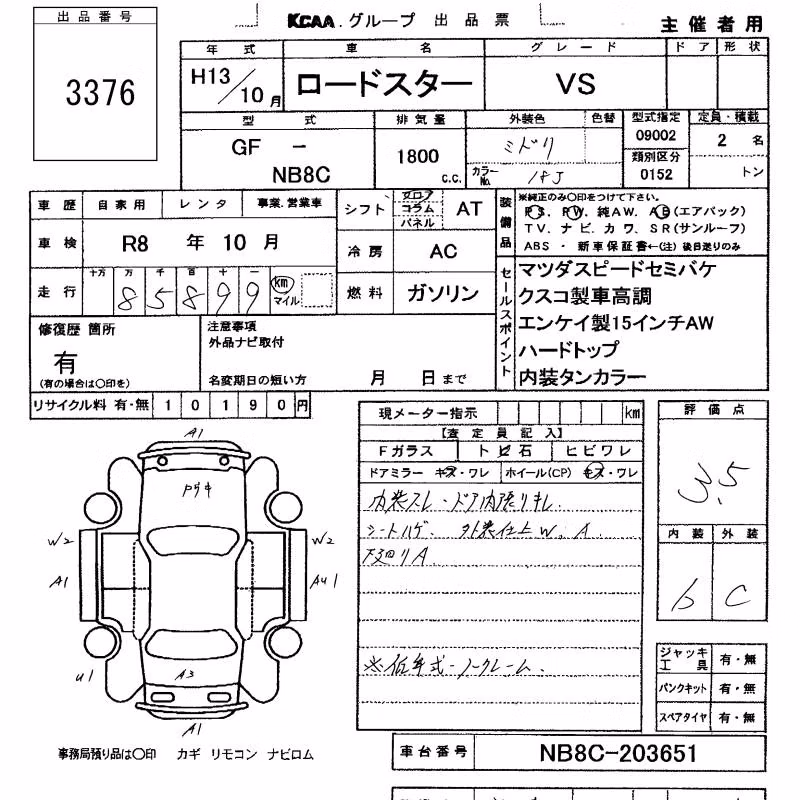 出品番号
3376
KCAA.グループ 出品票
主催者用
年式 車名 グレード ドア 形状
H13/10月 ロードスター VS
型式 排気量 外装色 色替 型式指定 定員・積載
GF - NB8C 1800 C.C. ミドリ 09002 2 名
カラーNo. 18J 類別区分 0152 トン
車歴 自家用 レンタ 事業.営業車
シフト フロア コラム パネル AT
装備品 ※純正のみ〇印をつけて下さい。
PS. PW. 純AW. AB(エアバック)
TV. ナビ. カワ. SR(サンルーフ)
ABS ・ 新車保証書←(注) 後日送りのみ
車検 R8 年 10 月
冷房 AC
走行 十万 万 千 百 十 一
8 5 8 9 9 km マイル
燃料 ガソリン
セールスポイント
マツダスピードセミバケ
クスコ製車高調
エンケイ製15インチAW
ハードトップ
内装タンカラー
修復歴 箇所
有
(有の場合は〇印を)
注意事項
外品ナビ取付
名変期日の短い方 月 日まで
リサイクル料 有・無 10190円
現メーター指示 km
【査定員記入】
Fガラス トビ石 ヒビワレ
ドアミラー キズ・ワレ ホイール(CP) キズ・ワレ
内装スレ・ドア内張りキレ
シートハゲ 外装仕上W. A
下廻りA
※低年式-ノークレーム.
評価点
3.5
内装 外装
b C
A1
W2 W2
A1 AU1
U1
A3
A1
ジャッキ工具 有・無
パンクキット 有・無
スペアタイヤ 有・無
事務局預り品は〇印 カギ リモコン ナビロム
車台番号 NB8C-203651